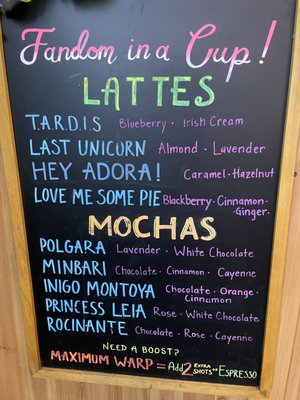 Fandom in a Cup!
LATTES
T.A.R.D.I.S Blueberry · Irish Cream
LAST UNICORN Almond · Lavender
HEY ADORA! Caramel · Hazelnut
LOVE ME SOME PIE Blackberry · Cinnamon · Ginger
MOCHAS
POLGARA Lavender · White Chocolate
MINBARI Chocolate · Cinnamon · Cayenne
INIGO MONTOYA Chocolate · Orange · Cinnamon
PRINCESS LEIA Rose · White Chocolate
ROCINANTE Chocolate · Rose · Cayenne
NEED A BOOST?
MAXIMUM WARP = Add 2 EXTRA SHOTS OF ESPRESSO